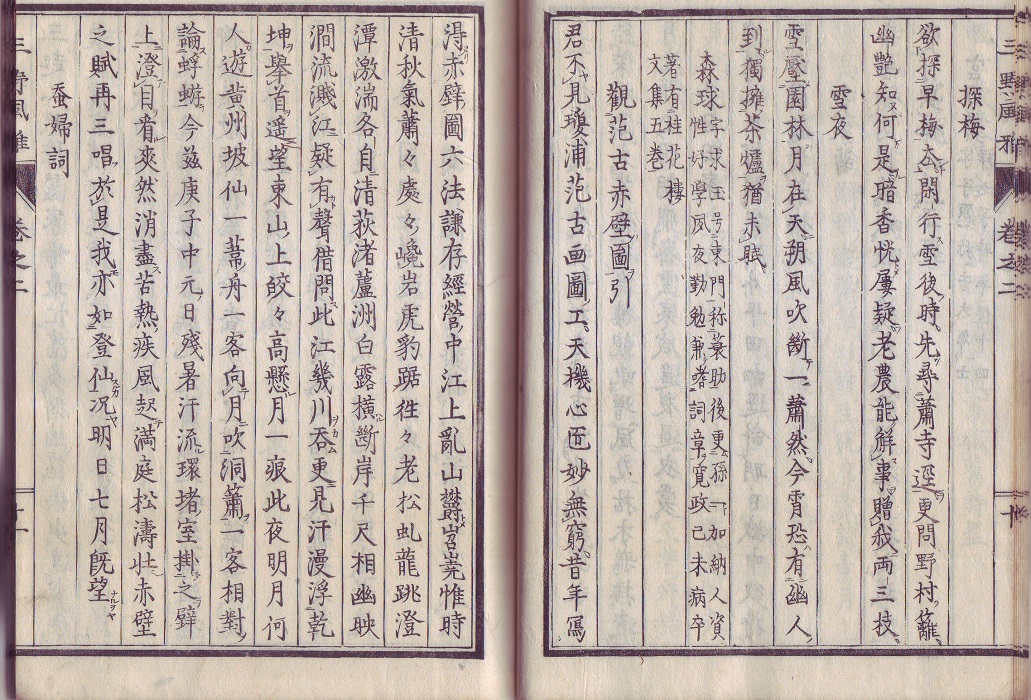 三野風雅 卷之二 十
探梅
欲探早梅太閑行雪後時先尋蕭寺逕更問野村籬
幽艷知何是暗香恍屢疑老農能解事贈我両三技
雪夜
雪壓園林月在天朔風吹斷一蕭然今霄恐有幽人
到獨擁茶爐猶未眠
森球字求玉号東門称蓑助後更孫一加納人資
性好學夙夜勤勉兼嗜詞章寛政己未病卒
著有桂花樓
文集五卷
觀范古赤壁圖引
君不見瓊浦范古画圖工天機心匠妙無窮昔年寫
淂赤壁圖六法謙存經營中江上亂山欝岧嶤惟時
清秋氣蕭々處々巉岩虎豹踞徃々老松虬龍跳澄
潭激湍各自清荻渚蘆洲白露橫斷岸千尺相幽映
澗流濺江疑有聲借問此江幾川吞更見汗漫浮乾
坤擧首遥望東山上皎々高懸月一痕此夜明月何
人遊黄州坡仙一葦舟一客向月吹洞簫一客相對
論蜉蝣今茲庚子中元日残暑汗流環堵室掛之壁
上澄目看爽然消盡苦熱疾風起満庭松濤壮赤壁
之賦再三唱於是我亦如登仙况明日七月既望
蚕婦詞
三野風雅 卷之二 十一